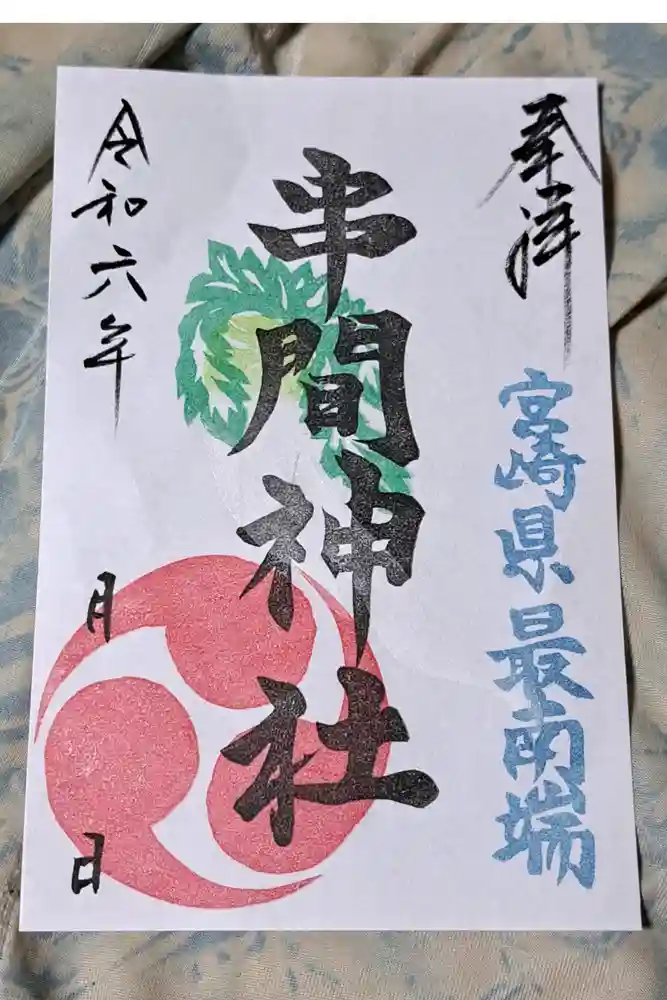 奉拝
宮崎県最南端
串間神社
令和六年
月
日